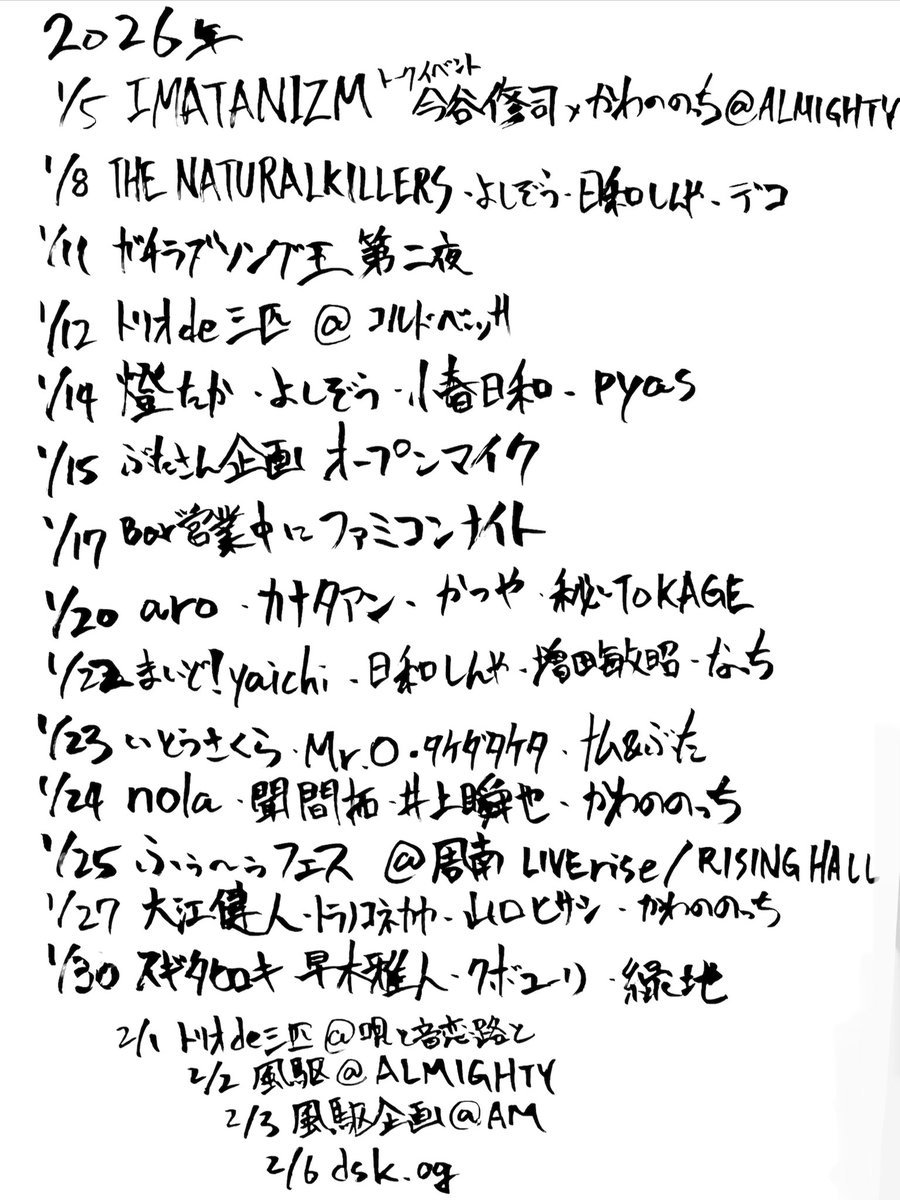 2026年
1/5 IMATANIZM トークイベント 今谷修司×かわののっち@ALMIGHTY
1/8 THE NATURALKILLERS・よしぞう・日和しんや・デコ
1/11 ガチラブソング王 第二夜
1/12 トリオde三匹 @ コルドベニッサ
1/14 燈たか・よしぞう・小春日和・pyas
1/15 ぶたさん企画 オープンマイク
1/17 Bar営業中にファミコンナイト
1/20 aro・カナタアン・かつや・秘密TOKAGE
1/22 まいど!yaichi・日和しんや・増田敏昭・なっち
1/23 いとうさくら・Mr.O・タケダタケタ・仏&ぶた
1/24 nola・聞間拓・井上瞬也・かわののっち
1/25 ふぅ〜ぅフェス @周南 LIVErise/RISING HALL
1/27 大江健人・トラノコネカヤ・山口ヒサシ・かわののっち
1/30 スギタヒロキ 早木雅人・クボユーリ・緑地
2/1 トリオde三匹@唄と音恋路と
2/2 風駆@ALMIGHTY
2/3 風駆企画@AM
2/6 dsk.og